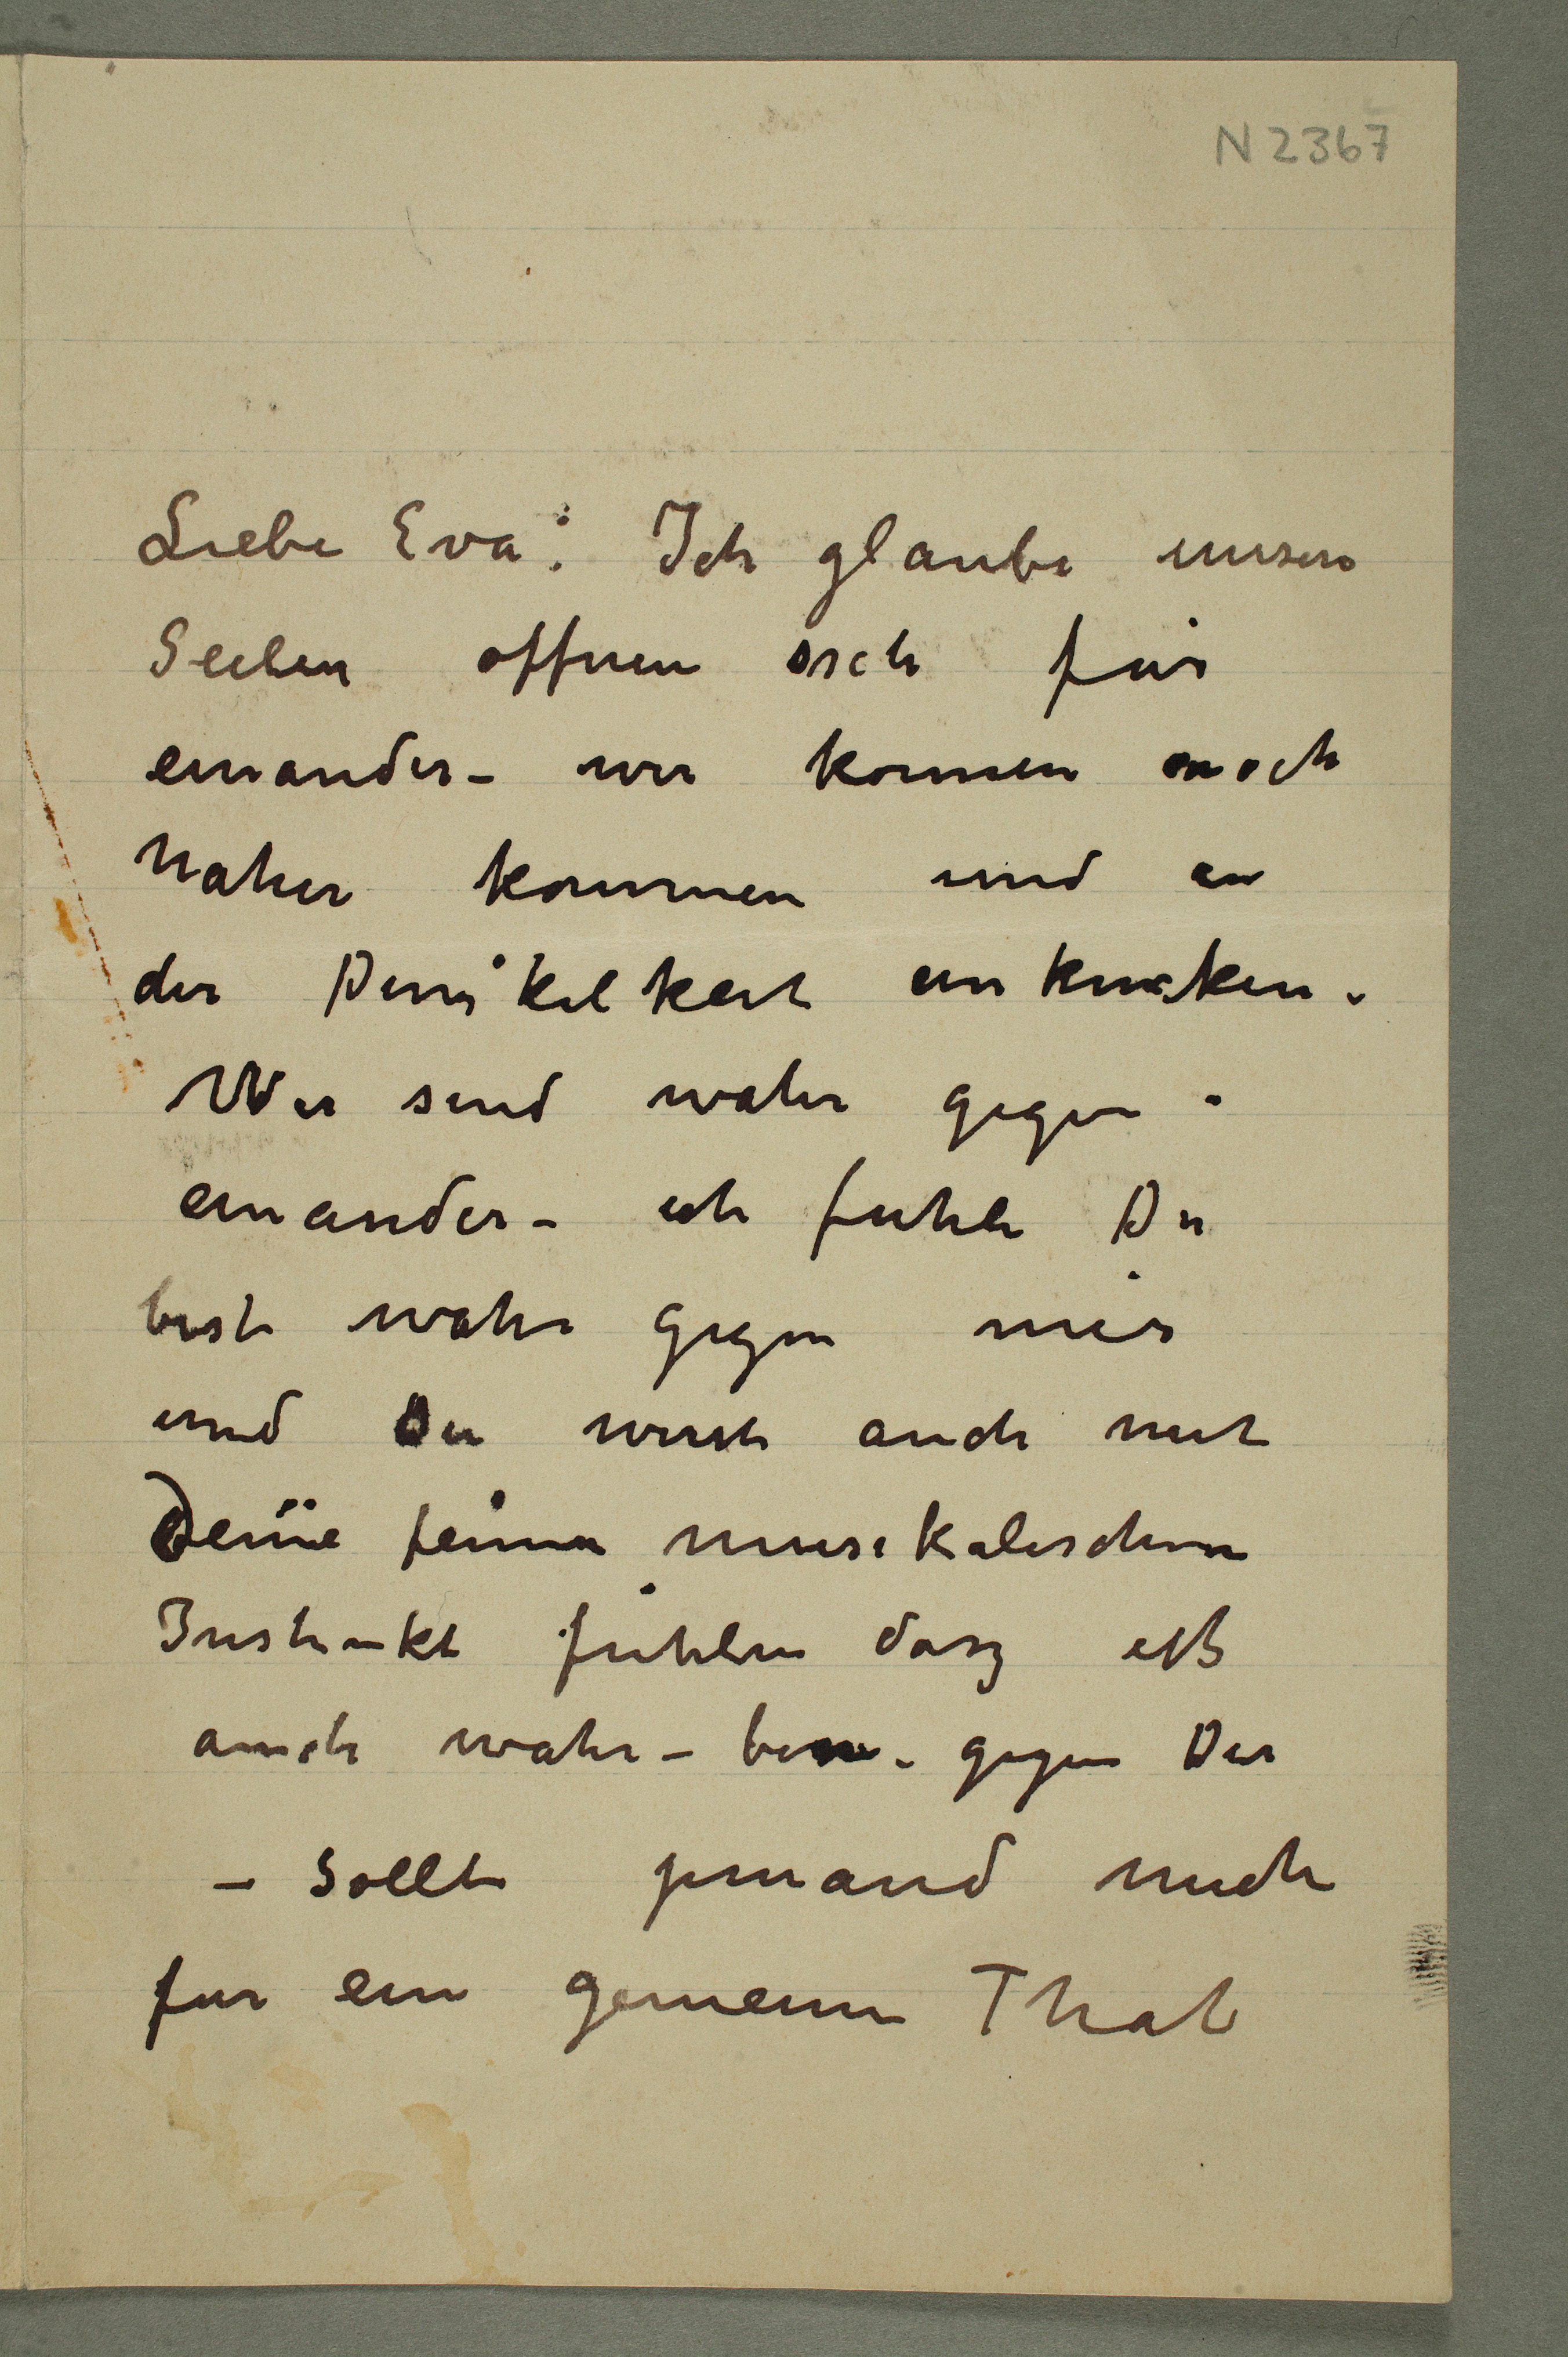 N 2367
Liebe Eva! Ich glaube unsere
Seelen offnen sich für
einander – wir konnen noch
naher kommen und in
der Dunkelkeit
Wir sind wahr gegen-
einander – ich fuhle Du
bist wahr gegen mir
und Du wirst auch mit
Deine feinen musikalischen
Instinkt fuhlen dasz ich
auch wahr – bin – gegen Dir
– Sollte jemand mich
fur ein gemeine That